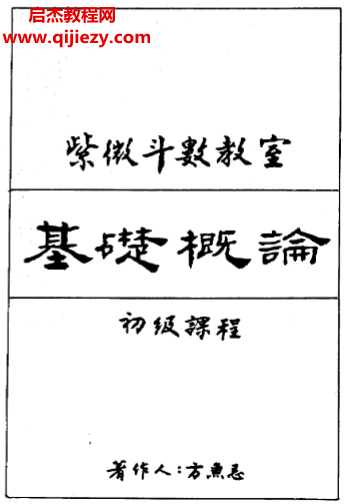 启杰教程网
www.qijiezy.com
紫微斗數教室
基礎概論
初級課程
著作人:方無忌